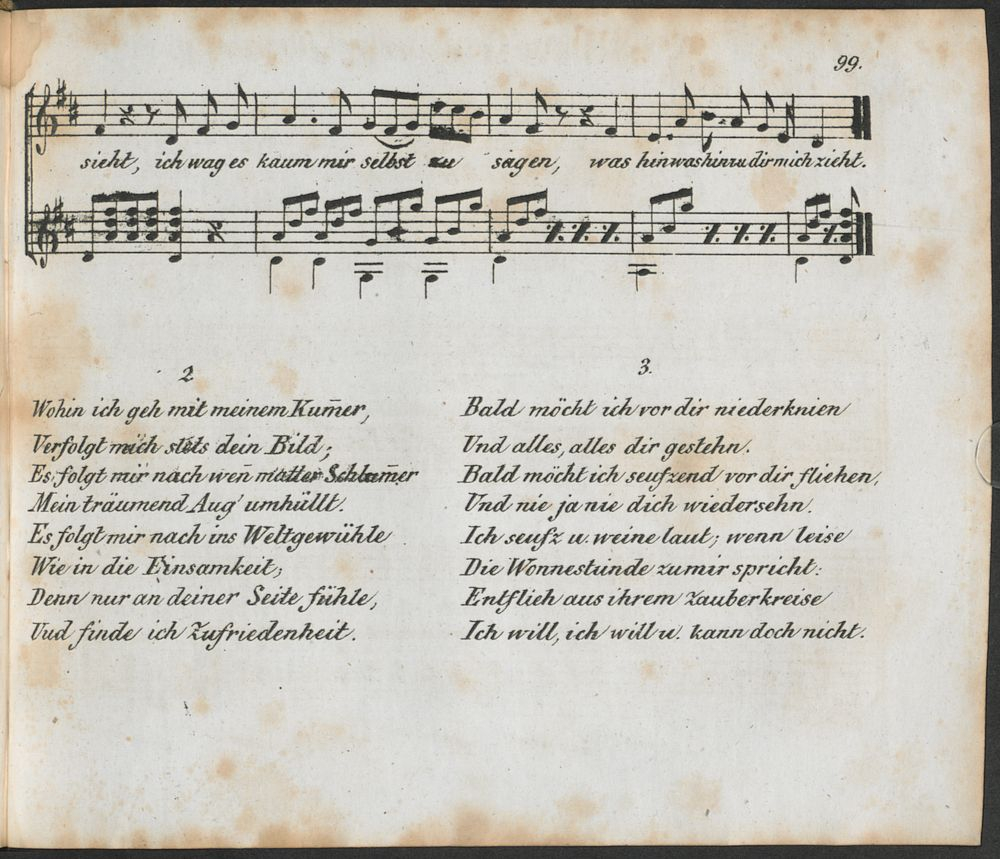 99.
sieht, ich wag es kaum mir selbst zu sagen, was hin was hin zu dir mich zieht.
2
Wohin ich geh mit meinem Kum̄er,
Verfolgt mich stets dein Bild;
Es folgt mir nach wen̄ matter Schlum̄er
Mein träumend Aug' umhüllt.
Es folgt mir nach ins Weltgewühle
Wie in die Einsamkeit;
Denn nur an deiner Seite fühle,
Und finde ich Zufriedenheit.
3.
Bald möcht ich vor dir niederknien
Und alles, alles dir gestehn.
Bald möcht ich seufzend vor dir fliehen,
Und nie ja nie dich wiedersehn.
Ich seufz u. weine laut; wenn leise
Die Wonnestunde zu mir spricht:
Entflieh aus ihrem Zauberkreise
Ich will, ich will u. kann doch nicht.